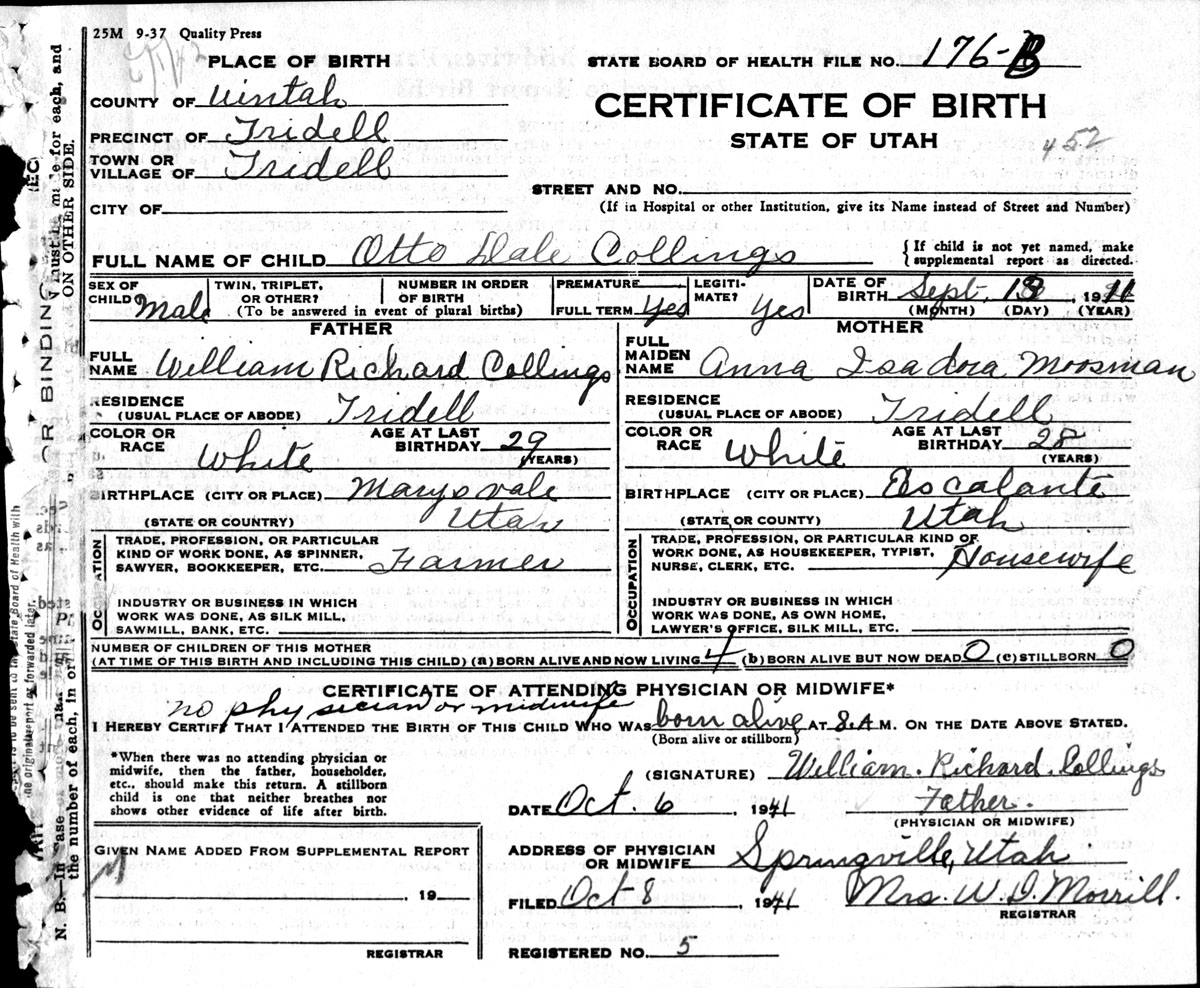 25M 9-37 Quality Press
PLACE OF BIRTH
STATE BOARD OF HEALTH FILE NO. 176-B
COUNTY OF Uintah
CERTIFICATE OF BIRTH
PRECINCT OF Tridell
STATE OF UTAH
452
TOWN OR
VILLAGE OF Tridell
STREET AND NO.
CITY OF
(If in Hospital or other Institution, give its Name instead of Street and Number)
FULL NAME OF CHILD Otto Dale Collings
{If child is not yet named, make
supplemental report as directed.
SEX OF
CHILD Male
TWIN, TRIPLET,
OR OTHER?
NUMBER IN ORDER
OF BIRTH
(To be answered in event of plural births)
PREMATURE
FULL TERM Yes
LEGITI-
MATE? Yes
DATE OF
BIRTH Sept. 1911
(MONTH) (DAY) (YEAR)
FATHER
FULL
NAME William Richard Collings
RESIDENCE
(USUAL PLACE OF ABODE) Tridell
COLOR OR
RACE White
AGE AT LAST
BIRTHDAY 29
(YEARS)
BIRTHPLACE (CITY OR PLACE) Marysvale
(STATE OR COUNTRY) Utah
OCCUPATION
TRADE, PROFESSION, OR PARTICULAR
KIND OF WORK DONE, AS SPINNER,
SAWYER, BOOKKEEPER, ETC. Farmer
INDUSTRY OR BUSINESS IN WHICH
WORK WAS DONE, AS SILK MILL,
SAWMILL, BANK, ETC.
MOTHER
FULL
MAIDEN
NAME Anna Isadora Moosman
RESIDENCE
(USUAL PLACE OF ABODE) Tridell
COLOR OR
RACE White
AGE AT LAST
BIRTHDAY 28
(YEARS)
BIRTHPLACE (CITY OR PLACE) Escalante
(STATE OR COUNTY) Utah
OCCUPATION
TRADE, PROFESSION, OR PARTICULAR KIND OF
WORK DONE, AS HOUSEKEEPER, TYPIST,
NURSE, CLERK, ETC. Housewife
INDUSTRY OR BUSINESS IN WHICH
WORK WAS DONE, AS OWN HOME,
LAWYER'S OFFICE, SILK MILL, ETC.
NUMBER OF CHILDREN OF THIS MOTHER
(AT TIME OF THIS BIRTH AND INCLUDING THIS CHILD) (a) BORN ALIVE AND NOW LIVING 4 (b) BORN ALIVE BUT NOW DEAD 0 (c) STILLBORN 0
CERTIFICATE OF ATTENDING PHYSICIAN OR MIDWIFE*
no physician or midwife
I HEREBY CERTIFY THAT I ATTENDED THE BIRTH OF THIS CHILD WHO WAS born alive AT 8 A M. ON THE DATE ABOVE STATED.
(Born alive or stillborn)
*When there was no attending physician or
midwife, then the father, householder,
etc., should make this return. A stillborn
child is one that neither breathes nor
shows other evidence of life after birth.
(SIGNATURE) William. Richard. Collings
Father.
DATE Oct. 6, 1941
(PHYSICIAN OR MIDWIFE)
ADDRESS OF PHYSICIAN
OR MIDWIFE Springville, Utah
FILED Oct 8, 1941 Mrs. W. D. Morrill.
REGISTRAR
REGISTERED NO. 5
GIVEN NAME ADDED FROM SUPPLEMENTAL REPORT
, 19
REGISTRAR
ON OTHER SIDE.
must be made for each, and
R BINDING
the number of each, in or